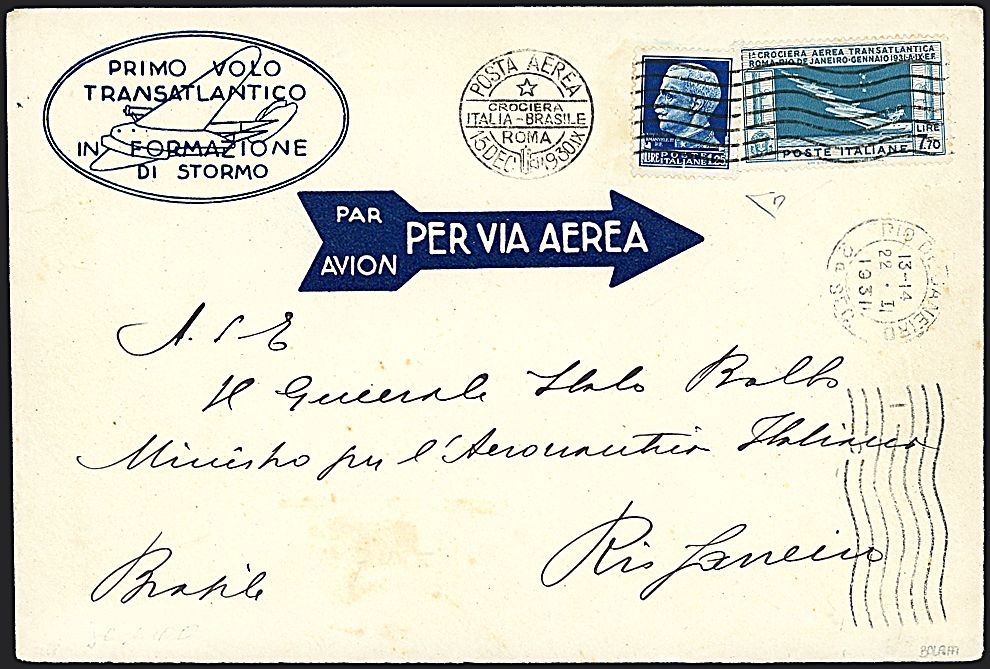 PRIMO VOLO
TRANSATLANTICO
IN FORMAZIONE
DI STORMO
POSTA AEREA
CROCIERA
ITALIA-BRASILE
ROMA
15 DEC 1930 IX
LIRE POSTE ITALIANE 1.25
1ª CROCIERA AEREA TRANSATLANTICA
ROMA-RIO DE JANEIRO-GENNAIO 1931-A.IX E.F.
LIRE
7.70
POSTE ITALIANE
PAR AVION
PER VIA AEREA
RIO DE JANEIRO
13-14
22 . II
1931
A. S. E
Il Generale Italo Balbo
Ministro per l'Aeronautica Italiana
Rio Janeiro
Brasile
BOLAFFI